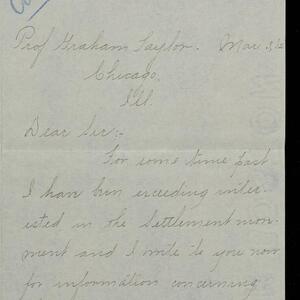 Prof Graham Taylor. Mar
Chicago,
Ill.
Dear Sir:-
For some time past
I have been exceeding inter-
ested in the Settlement mov-
ment and I write to you now
for information concerning